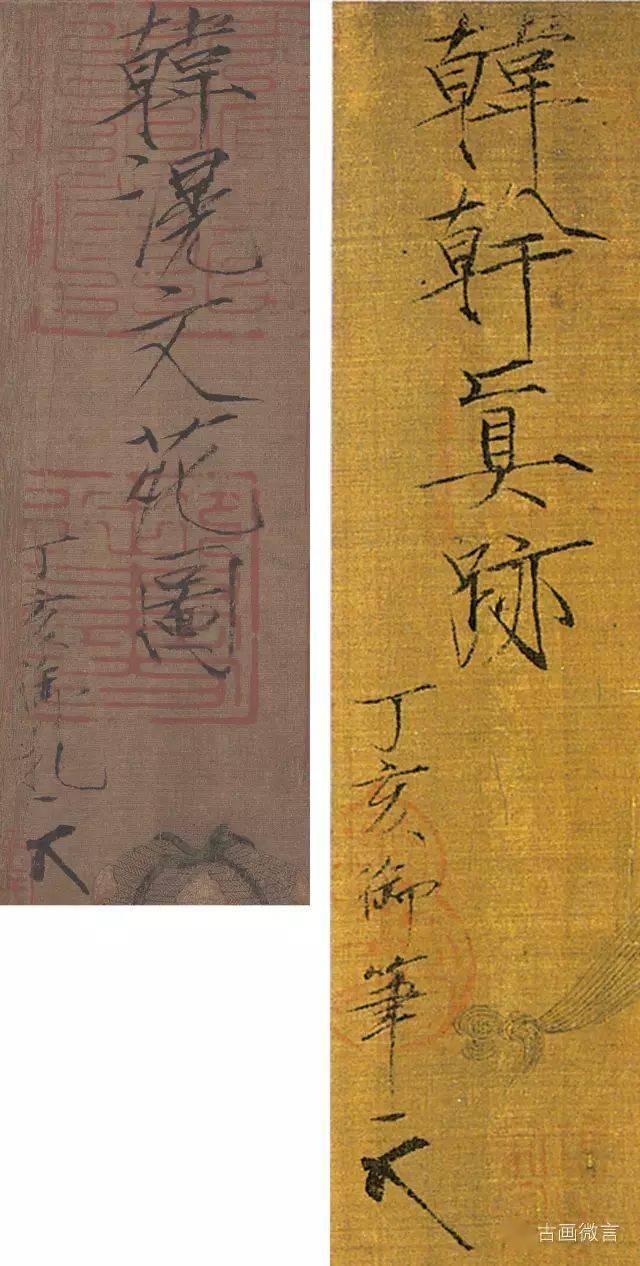 韓滉文苑圖
丁亥御札
韓幹真跡
丁亥御筆
古画微言